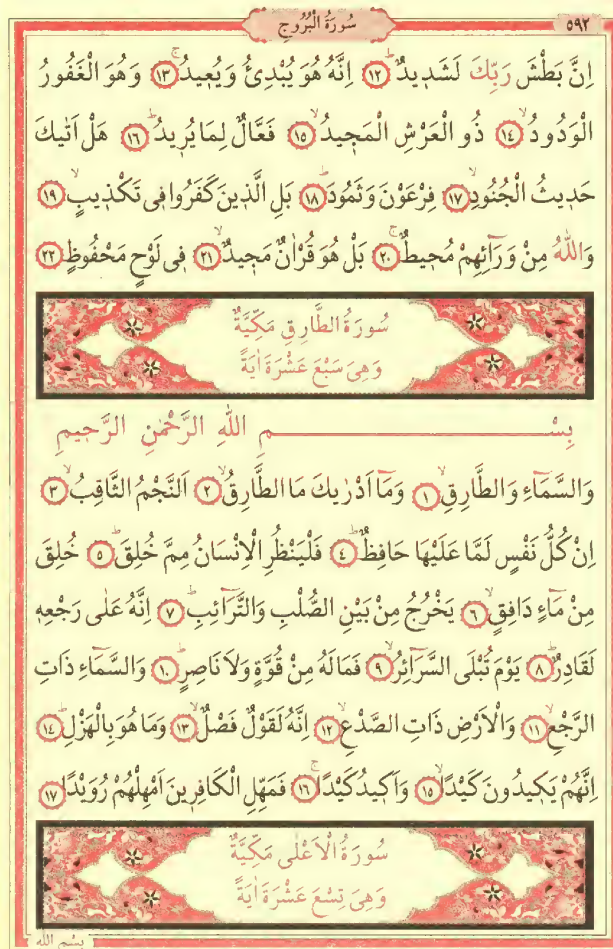 سُورَةُ الْبُرُوجِ ٥٩٢
اِنَّ بَطْشَ رَبِّكَ لَشَدٖيدٌۜ ١٢ اِنَّهُ هُوَ يُبْدِئُ وَيُعٖيدُۚ ١٣ وَهُوَ الْغَفُورُ
الْوَدُودُۙ ١٤ ذُو الْعَرْشِ الْمَجٖيدُۙ ١٥ فَعَّالٌ لِمَا يُرٖيدُۜ ١٦ هَلْ اَتٰيكَ
حَدٖيثُ الْجُنُودِۙ ١٧ فِرْعَوْنَ وَثَمُودَۜ ١٨ بَلِ الَّذٖينَ كَفَرُوا فٖى تَكْذٖيبٍۙ ١٩
وَاللّٰهُ مِنْ وَرَٓائِهِمْ مُحٖيطٌۚ ٢٠ بَلْ هُوَ قُرْاٰنٌ مَجٖيدٌۙ ٢١ فٖى لَوْحٍ مَحْفُوظٍ ٢٢
سُورَةُ الطَّارِقِ مَكِّيَّةٌ
وَهِىَ سَبْعَ عَشْرَةَ اٰيَةً
بِسْمِ اللّٰهِ الرَّحْمٰنِ الرَّحٖيمِ
وَالسَّمَٓاءِ وَالطَّارِقِۙ ١ وَمَٓا اَدْرٰيكَ مَا الطَّارِقُۙ ٢ اَلنَّجْمُ الثَّاقِبُۙ ٣
اِنْ كُلُّ نَفْسٍ لَمَّا عَلَيْهَا حَافِظٌۜ ٤ فَلْيَنْظُرِ الْاِنْسَانُ مِمَّ خُلِقَۜ ٥ خُلِقَ
مِنْ مَٓاءٍ دَافِقٍۙ ٦ يَخْرُجُ مِنْ بَيْنِ الصُّلْبِ وَالتَّرَٓائِبِۜ ٧ اِنَّهُ عَلٰى رَجْعِهٖ
لَقَادِرٌۜ ٨ يَوْمَ تُبْلَى السَّرَٓائِرُۙ ٩ فَمَا لَهُ مِنْ قُوَّةٍ وَلَا نَاصِرٍۜ ١٠ وَالسَّمَٓاءِ ذَاتِ
الرَّجْعِۙ ١١ وَالْاَرْضِ ذَاتِ الصَّدْعِۙ ١٢ اِنَّهُ لَقَوْلٌ فَصْلٌۙ ١٣ وَمَا هُوَ بِالْهَزْلِۜ ١٤
اِنَّهُمْ يَكٖيدُونَ كَيْدًاۙ ١٥ وَاَكٖيدُ كَيْدًاۚ ١٦ فَمَهِّلِ الْكَافِرٖينَ اَمْهِلْهُمْ رُوَيْدًا ١٧
سُورَةُ الْاَعْلٰى مَكِّيَّةٌ
وَهِىَ تِسْعَ عَشْرَةَ اٰيَةً
بِسْمِ اللّٰهِ